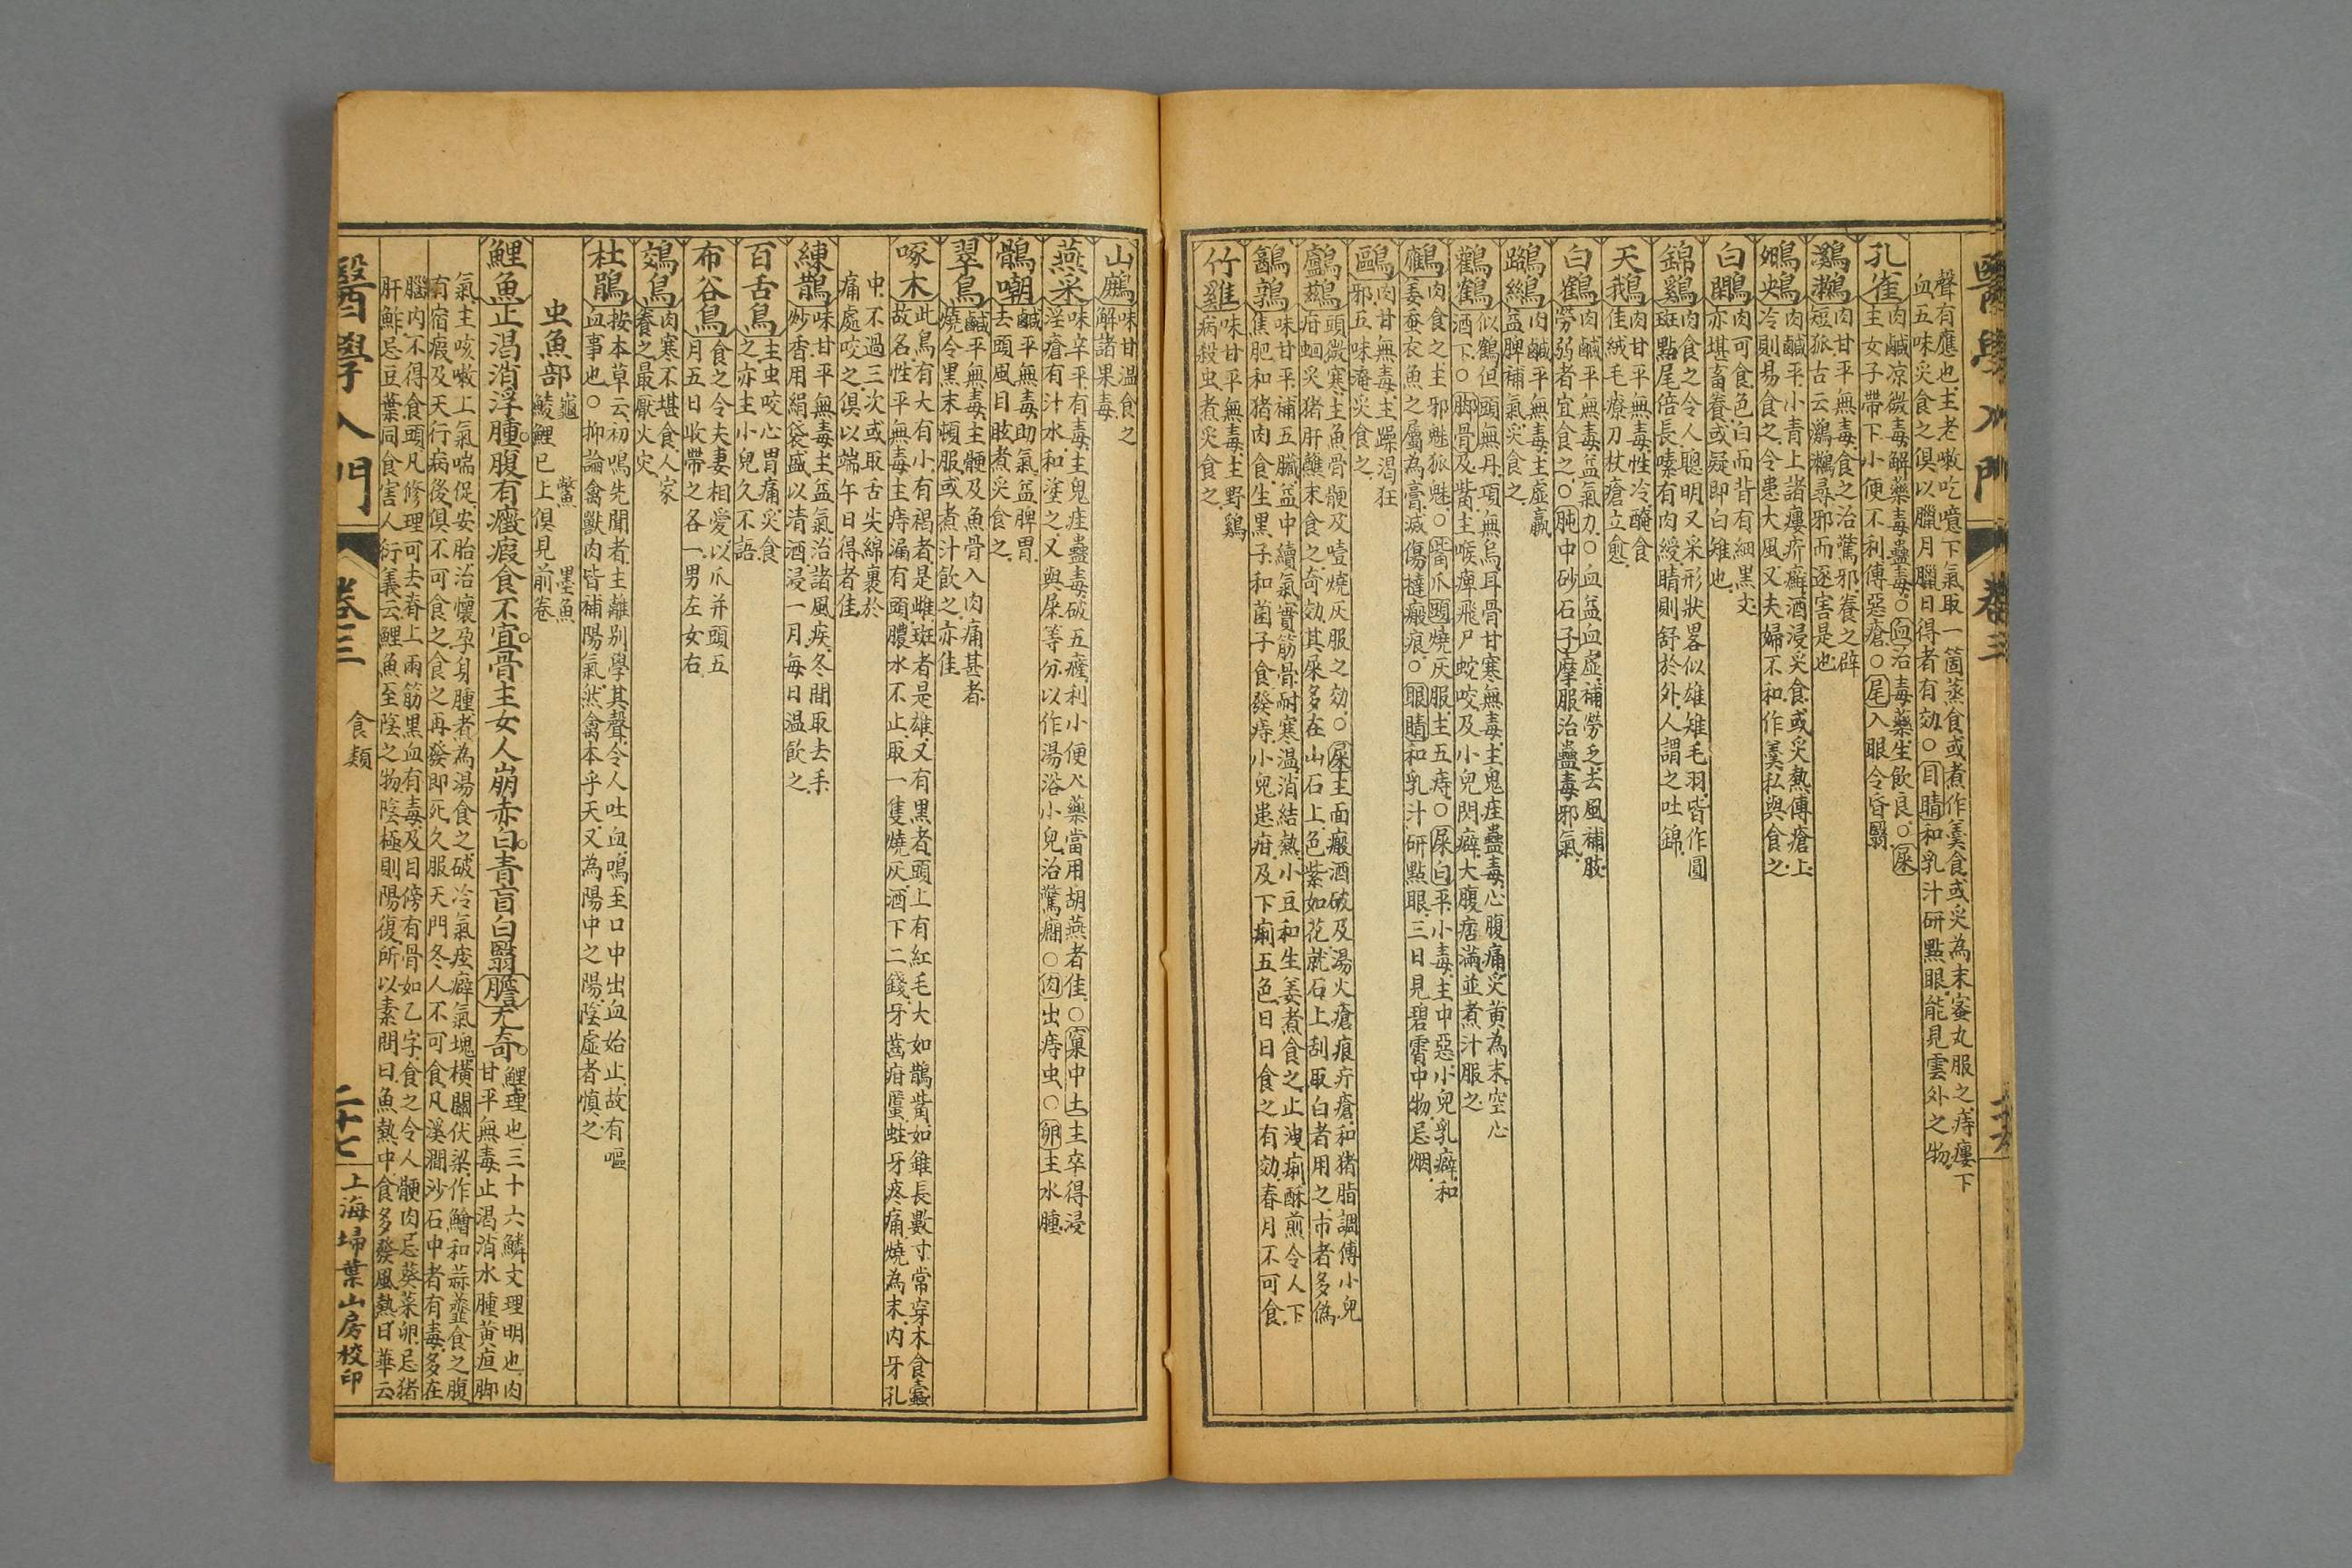 醫學入門 卷三
聲有應也主老嗽吃噫下氣取一箇蒸食或煮作羹食或炙為末蜜丸服之痔瘻下
血五味炙食之俱以臘月臘日得者有効○目睛和乳汁研點眼能見雲外之物
孔雀肉鹹凉微毒解藥毒蠱毒○血治毒藥生飲良○屎
主女子帶下小便不利傅惡瘡○尾入眼令昏翳
鸂鶒肉甘平無毒食之治驚邪養之辟
短狐古云鸂鶒尋邪而逐害是也
鴛鴦肉鹹平小青上諸瘻疥癬酒浸炙食或炙熱傅瘡上
冷則易食之令患大風又夫婦不和作羹私與食之
白鷴肉可食色白而背有細黑文
亦堪畜養或疑即白雉也
錦鷄肉食之令人聰明又采形狀畧似雄雉毛羽皆作圓
斑點尾倍長嗉有肉綬晴則舒於外人謂之吐錦
天鵝肉甘平無毒性冷醃食
佳絨毛療刀杖瘡立愈
白鶴肉鹹平無毒益氣力○血益血虛補勞乏去風補肢
勞弱者宜食之○肫中砂石子摩服治蠱毒邪氣
鷺鷥肉鹹平無毒主虛羸
益脾補氣炙食之
鸛鶴似鶴但頭無丹項無烏耳骨甘寒無毒主鬼疰蠱毒心腹痛炙黄為末空心
酒下○脚骨及觜主喉痺飛尸蛇咬及小兒閃癖大腹痞滿並煮汁服之
鷹肉食之主邪魅狐魅○觜爪頭燒灰服主五痔○屎白平小毒主中惡小兒乳癖和
姜蚕衣魚之屬為膏滅傷撻瘢痕○眼睛和乳汁研點眼三日見碧霄中物忌烟
鷗肉甘無毒主躁渴狂
邪五味淹炙食之
鸕鷀頭微寒主魚骨骾及噎燒灰服之効○屎主面瘢酒破及湯火瘡痕疔瘡和猪脂調傅小兒
疳蛔炙猪肝蘸末食之奇効其屎多在山石上色紫如花就石上刮取白者用之市者多偽
鷭鶉味甘平補五臟益中續氣實筋骨耐寒温消結熱小豆和生姜煮食之止洩痢酥煎令人下
焦肥和猪肉食生黑子和菌子食發痔小兒患疳及下痢五色日日食之有効春月不可食
竹雞味甘平無毒主野鷄
病殺虫煮炙食之
山鷓味甘温食之
解諸果毒
燕采味辛平有毒主鬼疰蠱毒破五癃利小便入藥當用胡燕者佳○窠中土主卒得浸
淫瘡有汁水和塗之又與屎等分以作湯浴小兒治驚癇○肉出痔虫○卵主水腫
鶻嘲鹹平無毒助氣益脾胃
去頭風目眩煮炙食之
翠鳥鹹平無毒主骾及魚骨入肉痛甚者
燒令黑末頓服或煮汁飲之亦佳
啄木此鳥有大有小有褐者是雌斑者是雄又有黑者頭上有紅毛大如鵲觜如錐長數寸常穿木食蠹
故名性平無毒主痔漏有頭膿水不止取一隻燒灰酒下二錢牙齒疳䘌蛀牙疼痛燒為末内牙孔
中不過三次或取舌尖綿裹於
痛處咬之俱以端午日得者佳
練鵲味甘平無毒主益氣治諸風疾冬間取去毛
炒香用絹袋盛以清酒浸一月每日温飲之
百舌鳥主虫咬心胃痛炙食
之亦主小兒久不語
布谷鳥食之令夫妻相愛以爪并頭五
月五日收帶之各一男左女右
鵁鳥肉寒不堪食人家
養之最厭火灾
杜鵑按本草云初鳴先聞者主離别學其聲令人吐血鳴至口中出血始止故有嘔
血事也○抑論禽獸肉皆補陽氣然禽本乎天又為陽中之陽陰虛者慎之
虫魚部 龜 鱉 墨魚
鯪鯉已上俱見前卷
鯉魚止渴消浮腫腹有癥瘕食不宜骨主女人崩赤白青盲白翳膽尤奇鯉理也三十六鱗文理明也肉
甘平無毒止渴消水腫黄疸脚
氣主咳嗽上氣喘促安胎治懷孕身腫者為湯食之破冷氣痃癖氣塊横關伏梁作鱠和蒜虀食之腹
有宿瘕及天行病後俱不可食之食之再發即死久服天門冬人不可食凡溪澗沙石中者有毒多在
腦内不得食頭凡修理可去脊上兩筋黑血有毒及目傍有骨如乙字食之令人骾肉忌葵菜卵忌猪
肝鮓忌豆葉同食害人衍義云鯉魚至陰之物陰極則陽復所以素問曰魚熱中食多發風熱日華云
醫學入門 卷三 食類 二十七 上海埽葉山房校印